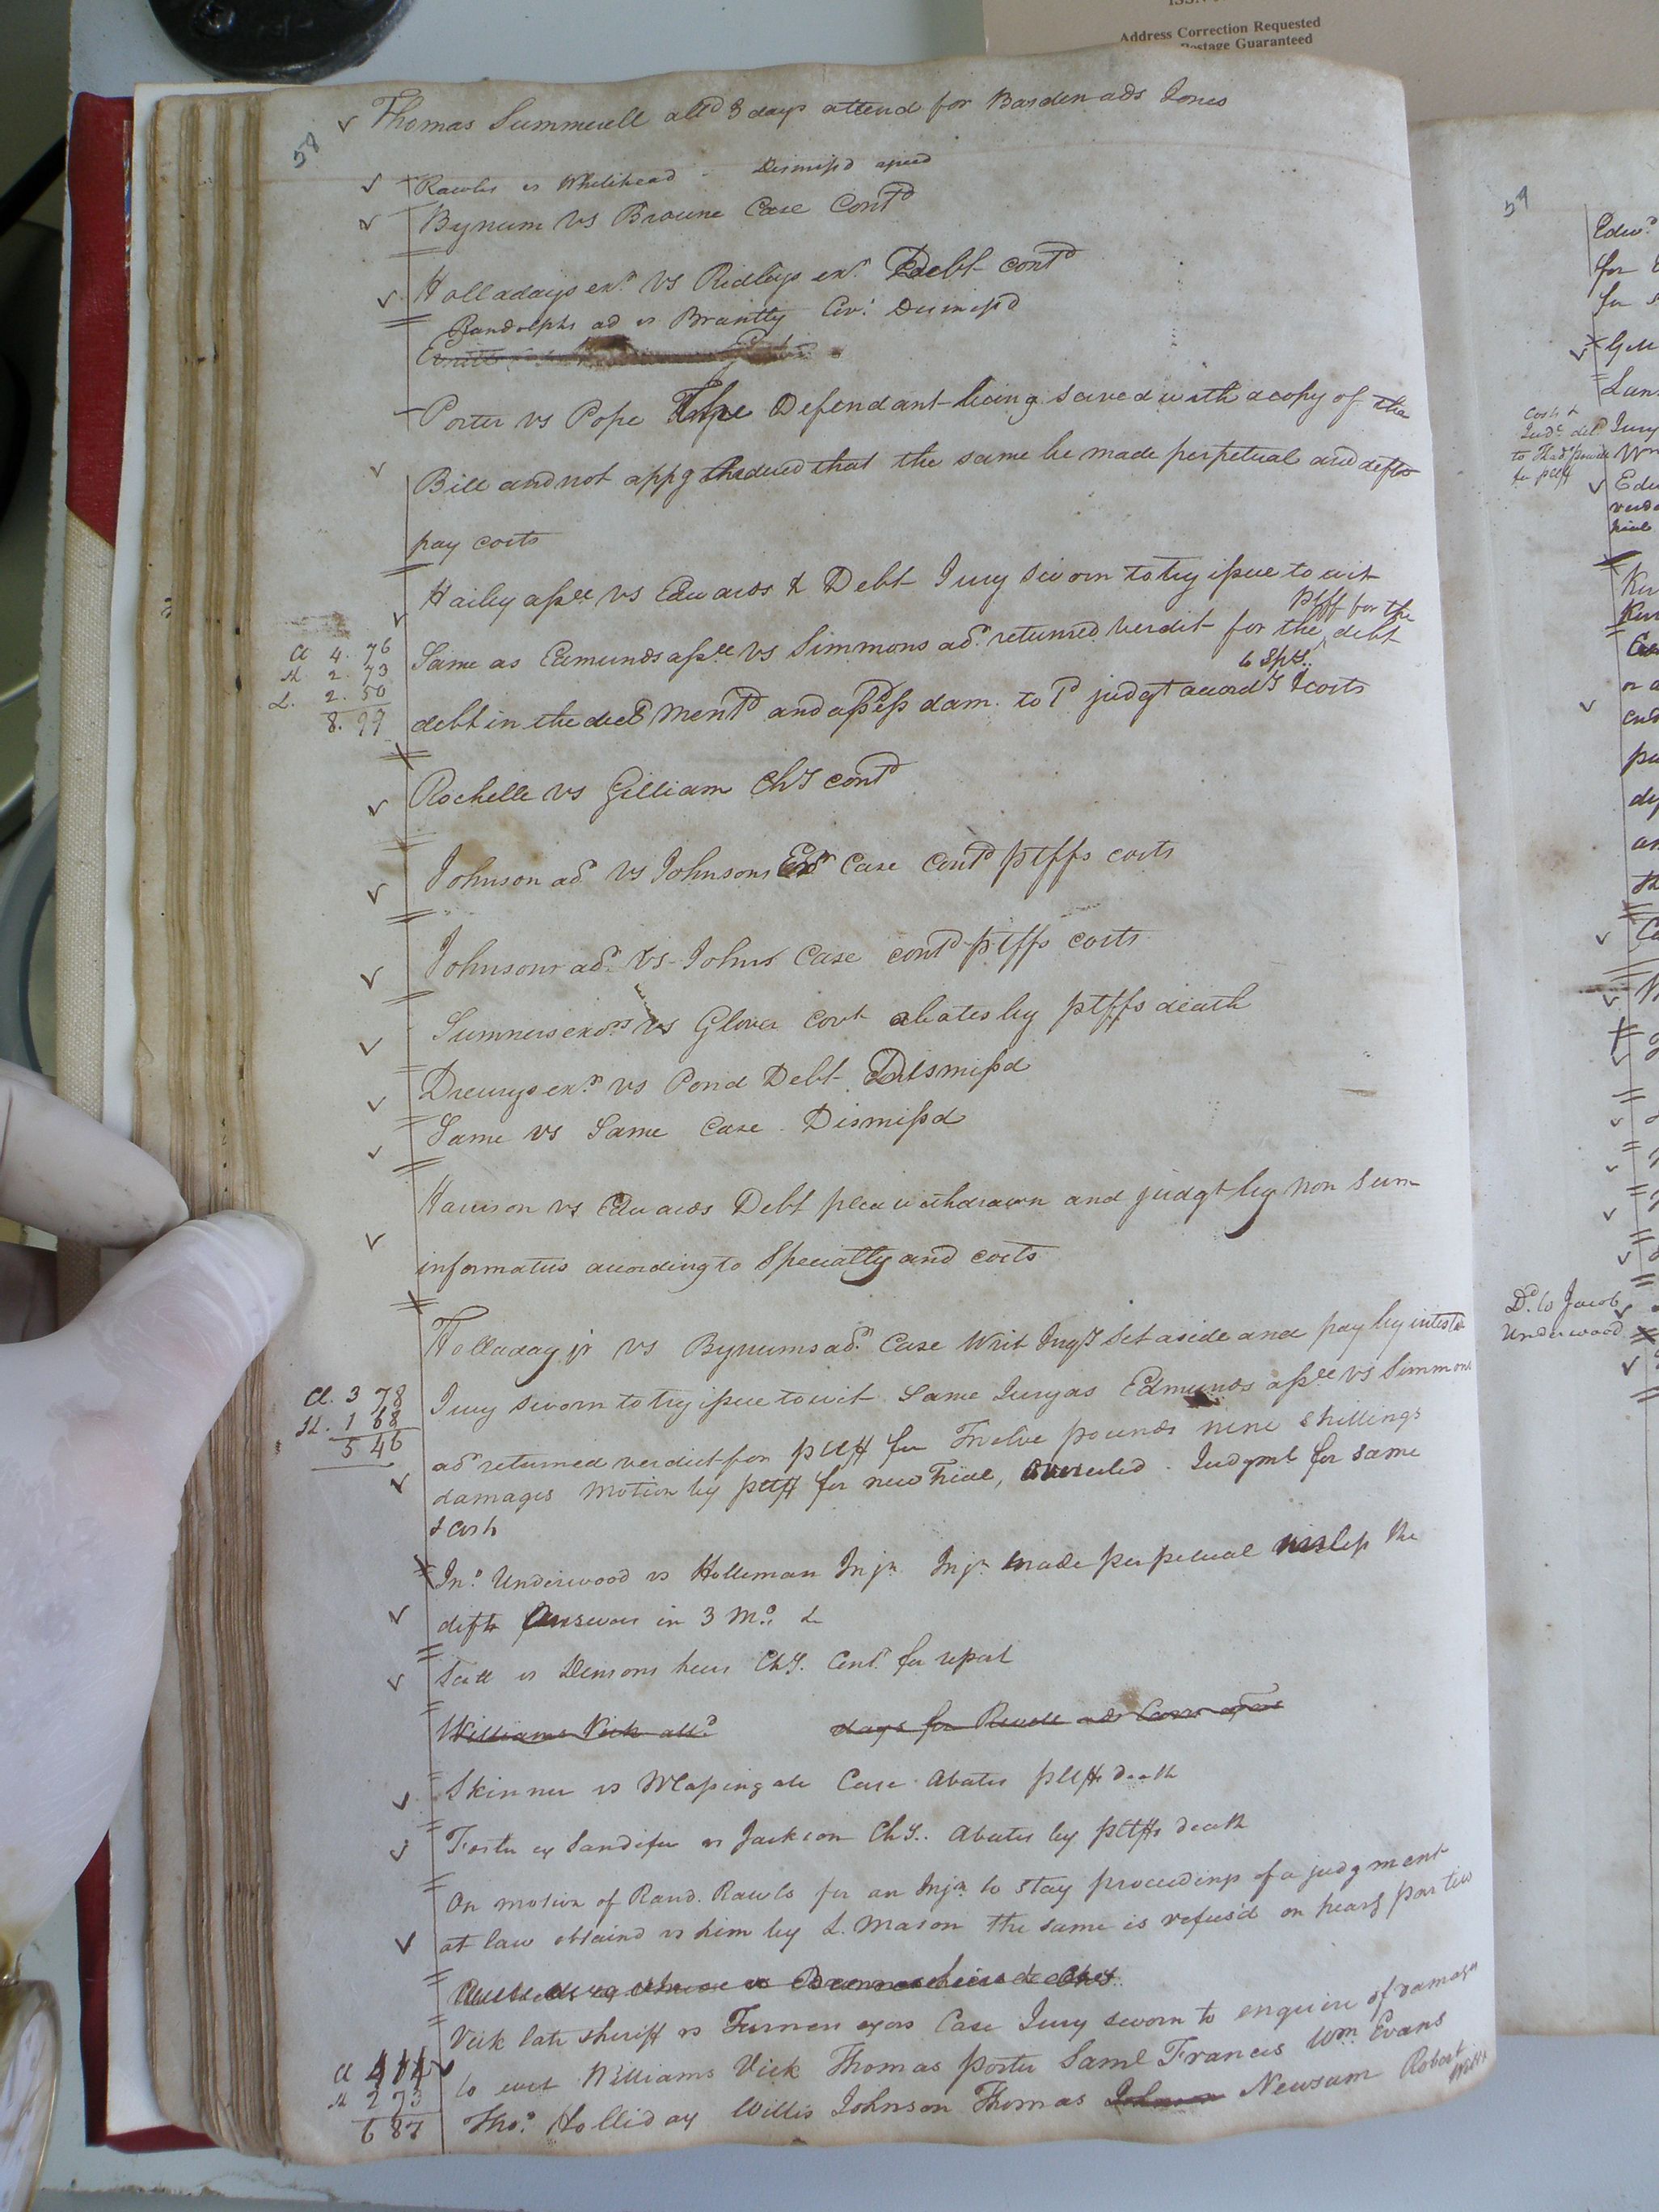 Address Correction Requested
Postage Guaranteed
58
Thomas Summerell alld 3 days attend for Barden ads Jones
Rawls vs Whitehead Dismissd agreed
Bynum vs Browne Case Contd
Holladays exr. vs Ridleys exr. Debt contd
Randolphs ad vs Brantly Cov: Dismissd
Porter vs Pope The Defendant being served with a copy of the
Bill and not appg Ordered that the same be made perpetual and defts
pay costs
Hailey assee vs Edwards & Debt Jury sworn to try issue to wit
ptff for the
Same as Edmunds assee vs Simmons adr. returned verdit for the debt
Cl 4. 76
Sh. 2. 73
L. 2. 50
8. 99
debt in the decl ment and assess dam. to 1d judgt accordg & costs
Rochelle vs Gilliam Chy contd
Johnson adr vs Johnsons Exr Case Contd ptffs costs
Johnsons adr. vs Johns Case contd ptffs costs
Sumners exors vs Glover Covt abates by ptffs death
Drewrys exr. vs Pond Debt Dismissd
Same vs Same Case Dismissd
Harrison vs Edwards Debt plea withdrawn and judgt by non sum
informatus according to Specialty and costs
Holladay jr vs Bynums adr. Case Writ Inqy Set aside and pay by intesta
Jury sworn to try issue to wit Same Jury as Edmunds assee vs Simmons
Cl. 3 78
Sh. 1 68
5 46
adr returned verdict for pltff for Twelve pounds nine shillings
damages Motion by pltff for new Trial, overruled. Judgmt for same
& costs
Jno. Underwood vs Holleman Injn Injn made perpetual unless the
defts Answers in 3 Mo. &
Scott vs Densons heirs Chy. Contd for report
Williams Vick alld days for
Skinner vs Massingale Case Abates pltffs death
Foster ex Sandifer vs Jackson Chy. Abates by pltffs death
On motion of Rand. Rawls for an Injn to stay proceedings of a judgment
at law obtaind vs him by L. Mason the same is refusd on hearg parties
Vick late sheriff vs Turners exors Case Jury sworn to enquire of damages
Cl 4 14
Sh 2 73
6 87
to wit Williams Vick Thomas Porter Saml Francis Wm Evans
Thos. Holliday Willis Johnson Thomas Johnson Newsum Robert
59
Edwd.
for
Costs &
Judt. deld
to Thad. Powell
for pltff
Jury
Dd. to Jacob
Underwood